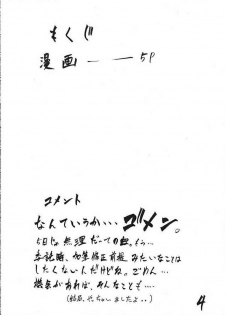 もくじ
漫画 ― ― 5P
コメント
なんていうか… ゴメン。
5日じゃ無理だっての。もう…
委託時、加筆修正前提みたいなことは
したくないんだけどね。ごめん…
機会があれば、そんなことも…
(結局、やっちゃいましたよ..)
4